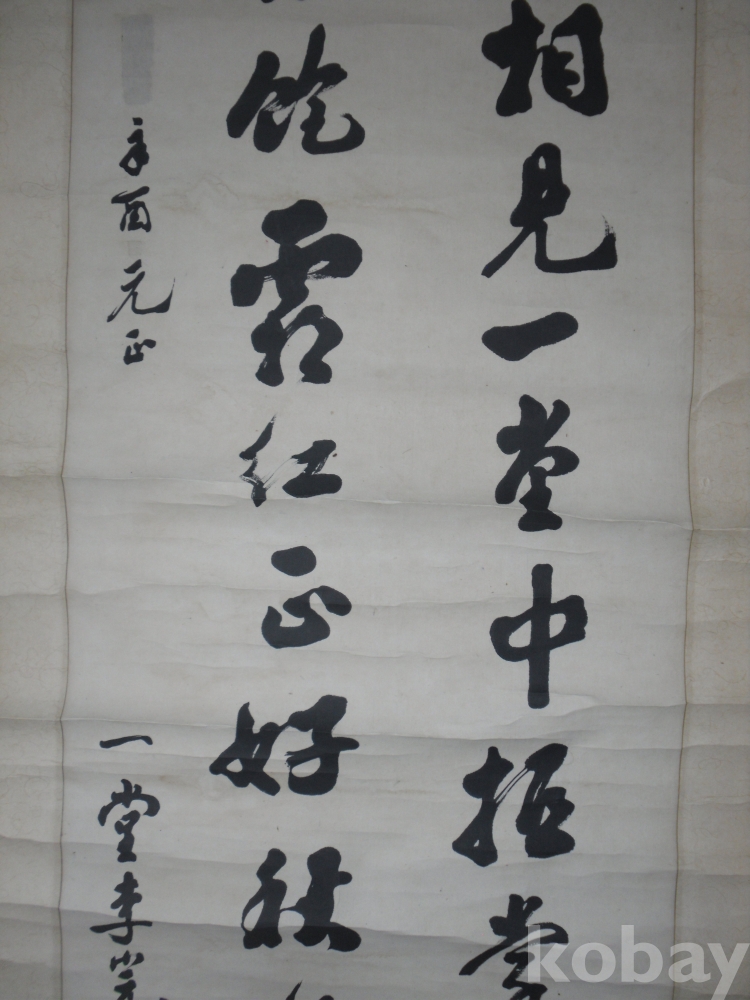 相見一堂中抵掌
飽霜紅正好秋
辛酉元正
一堂李
kobay